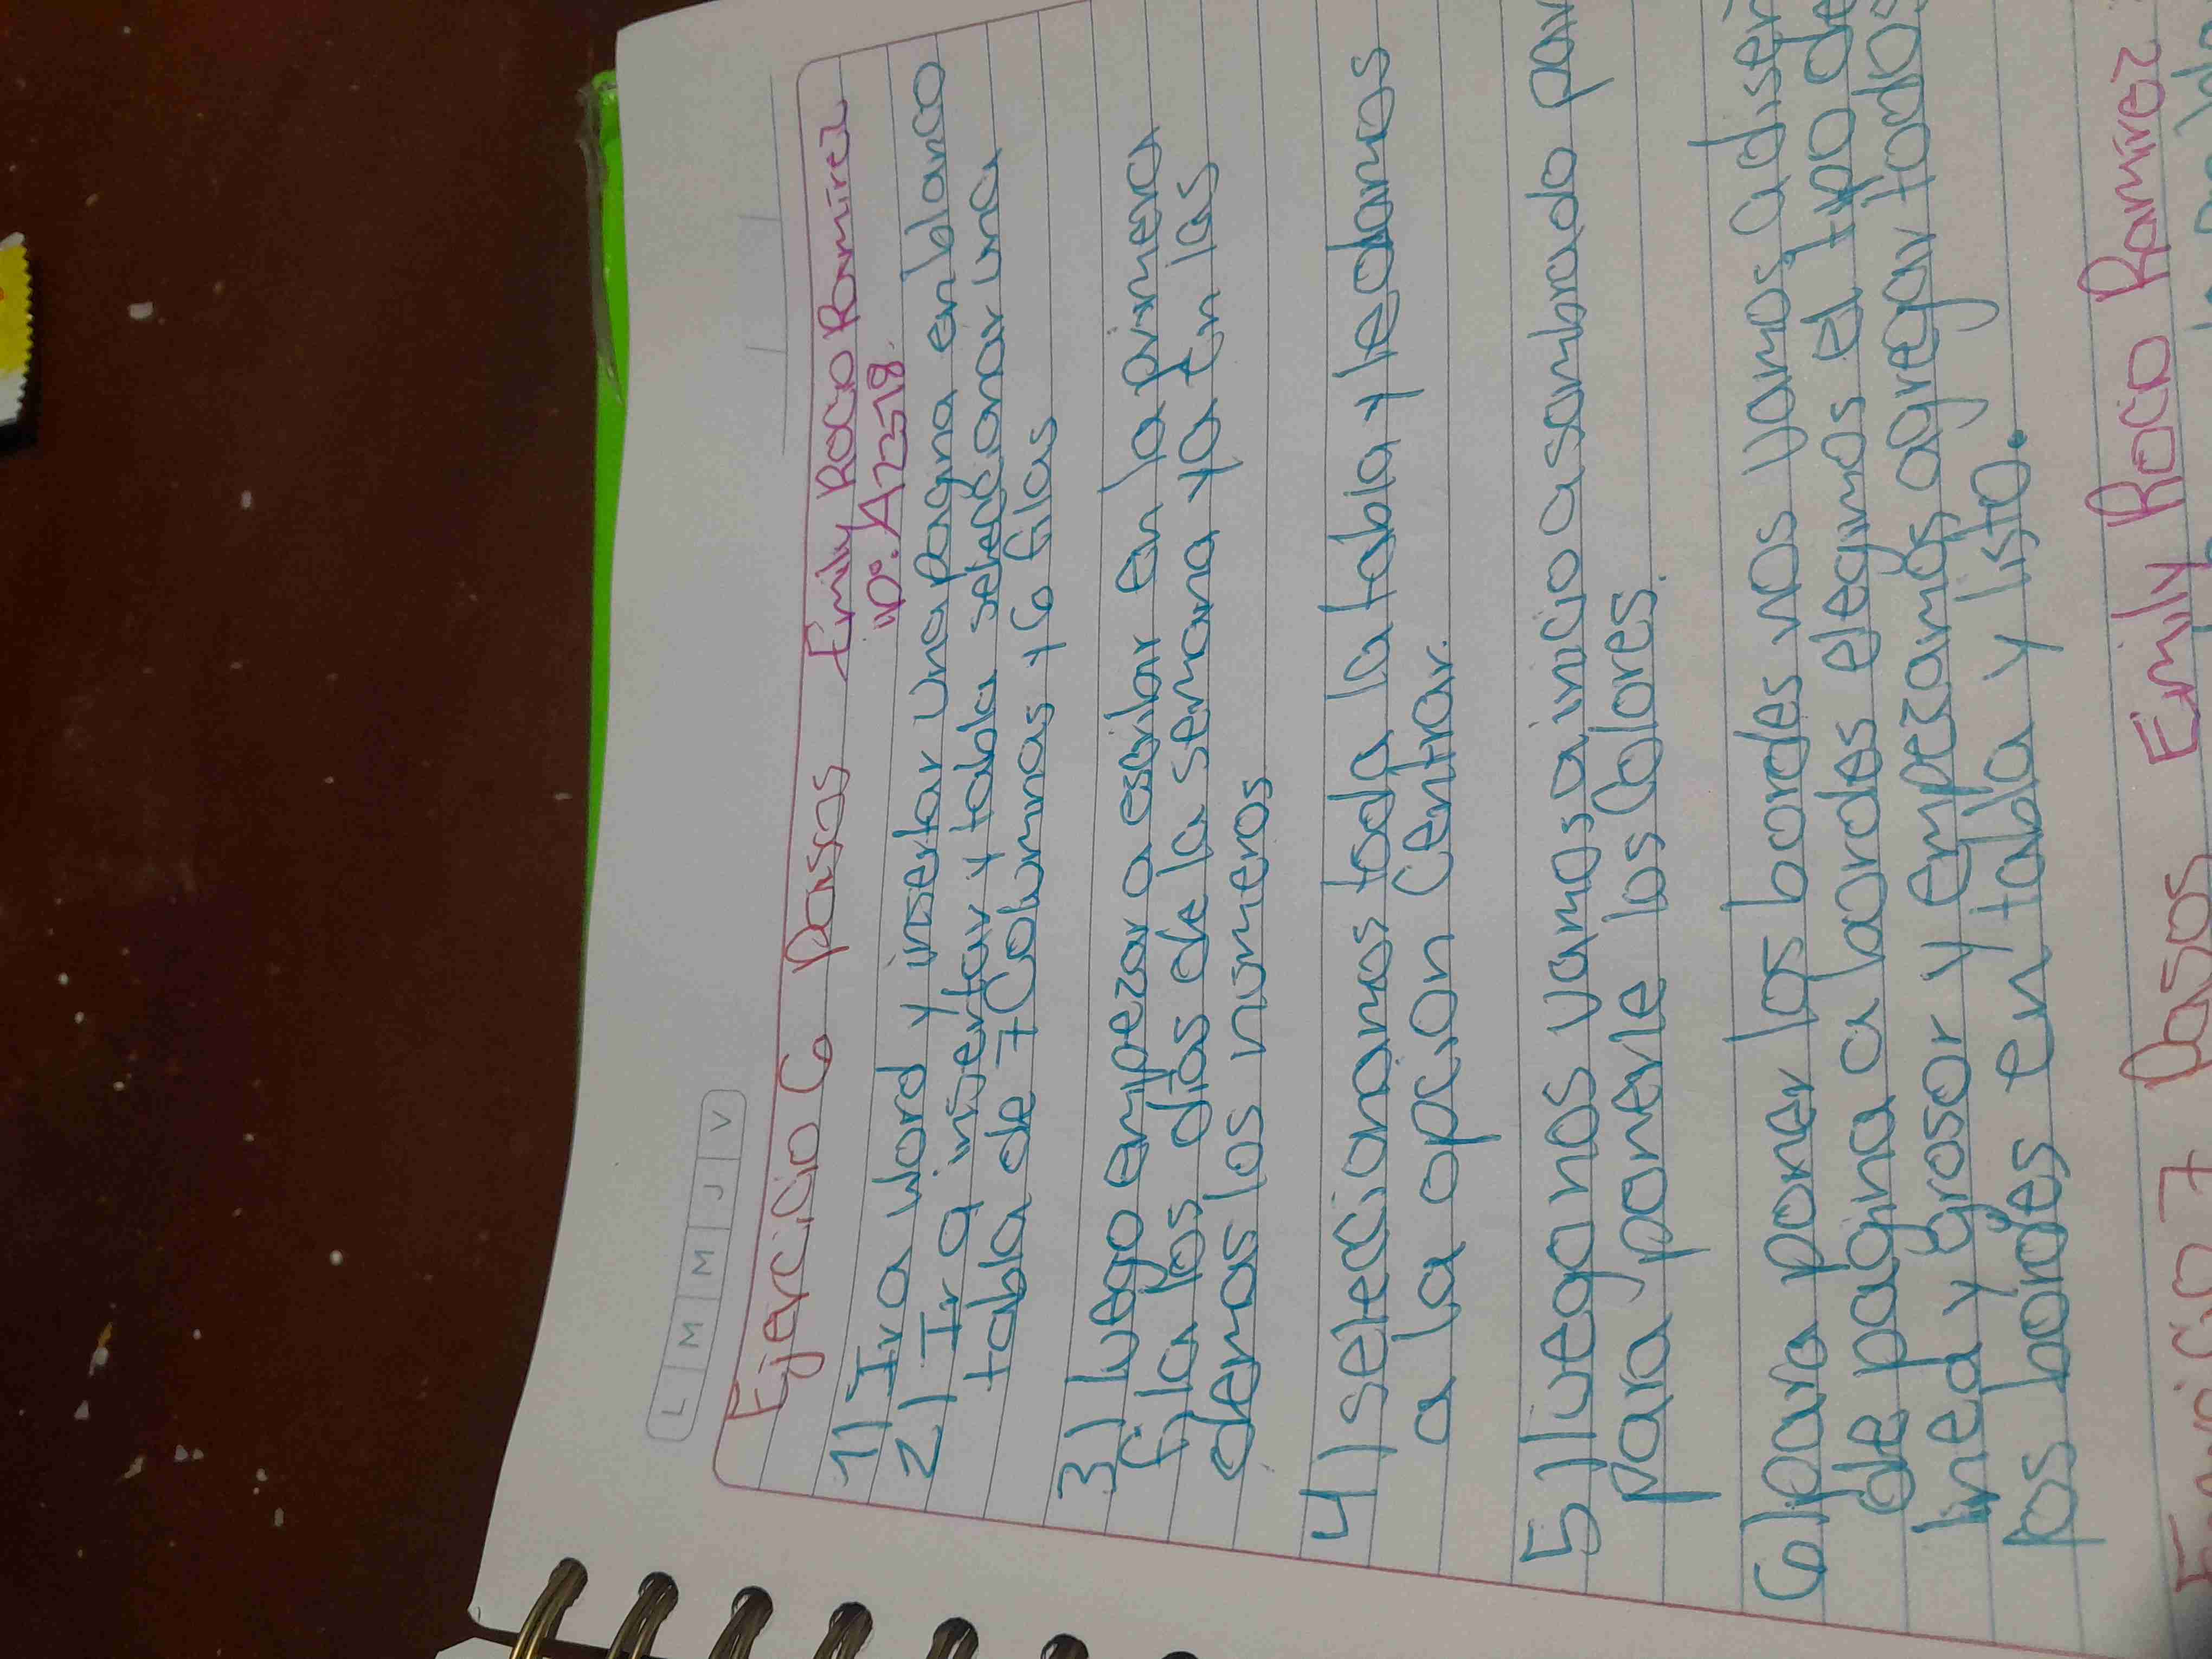 L M M J V
Ejercicio 6 pasos Emily Rocio Ramirez
no: A23518.
1) Ir a Word y insertar una pagina en blanco
2) Ir a insertar y tabla seleccionar una
tabla de 7 Columnas y 6 filas
3) luego empezar a escribir en la primera
fila los dias de la semana ya en las
demas los numeros
4) seleccionamos toda la tabla y ledamos
a la opcion Centrar.
5) luego nos vamos a inicio a sombreado par
para ponerle los Colores.
6) para poner los bordes nos vamos a diseñ
de pagina a bordes elegimos el tipo de
linea y grosor y empezamos agregar todos
los bordes en tabla y listo.
Ejercicio 7 Pasos Emily Rocio Ramirez